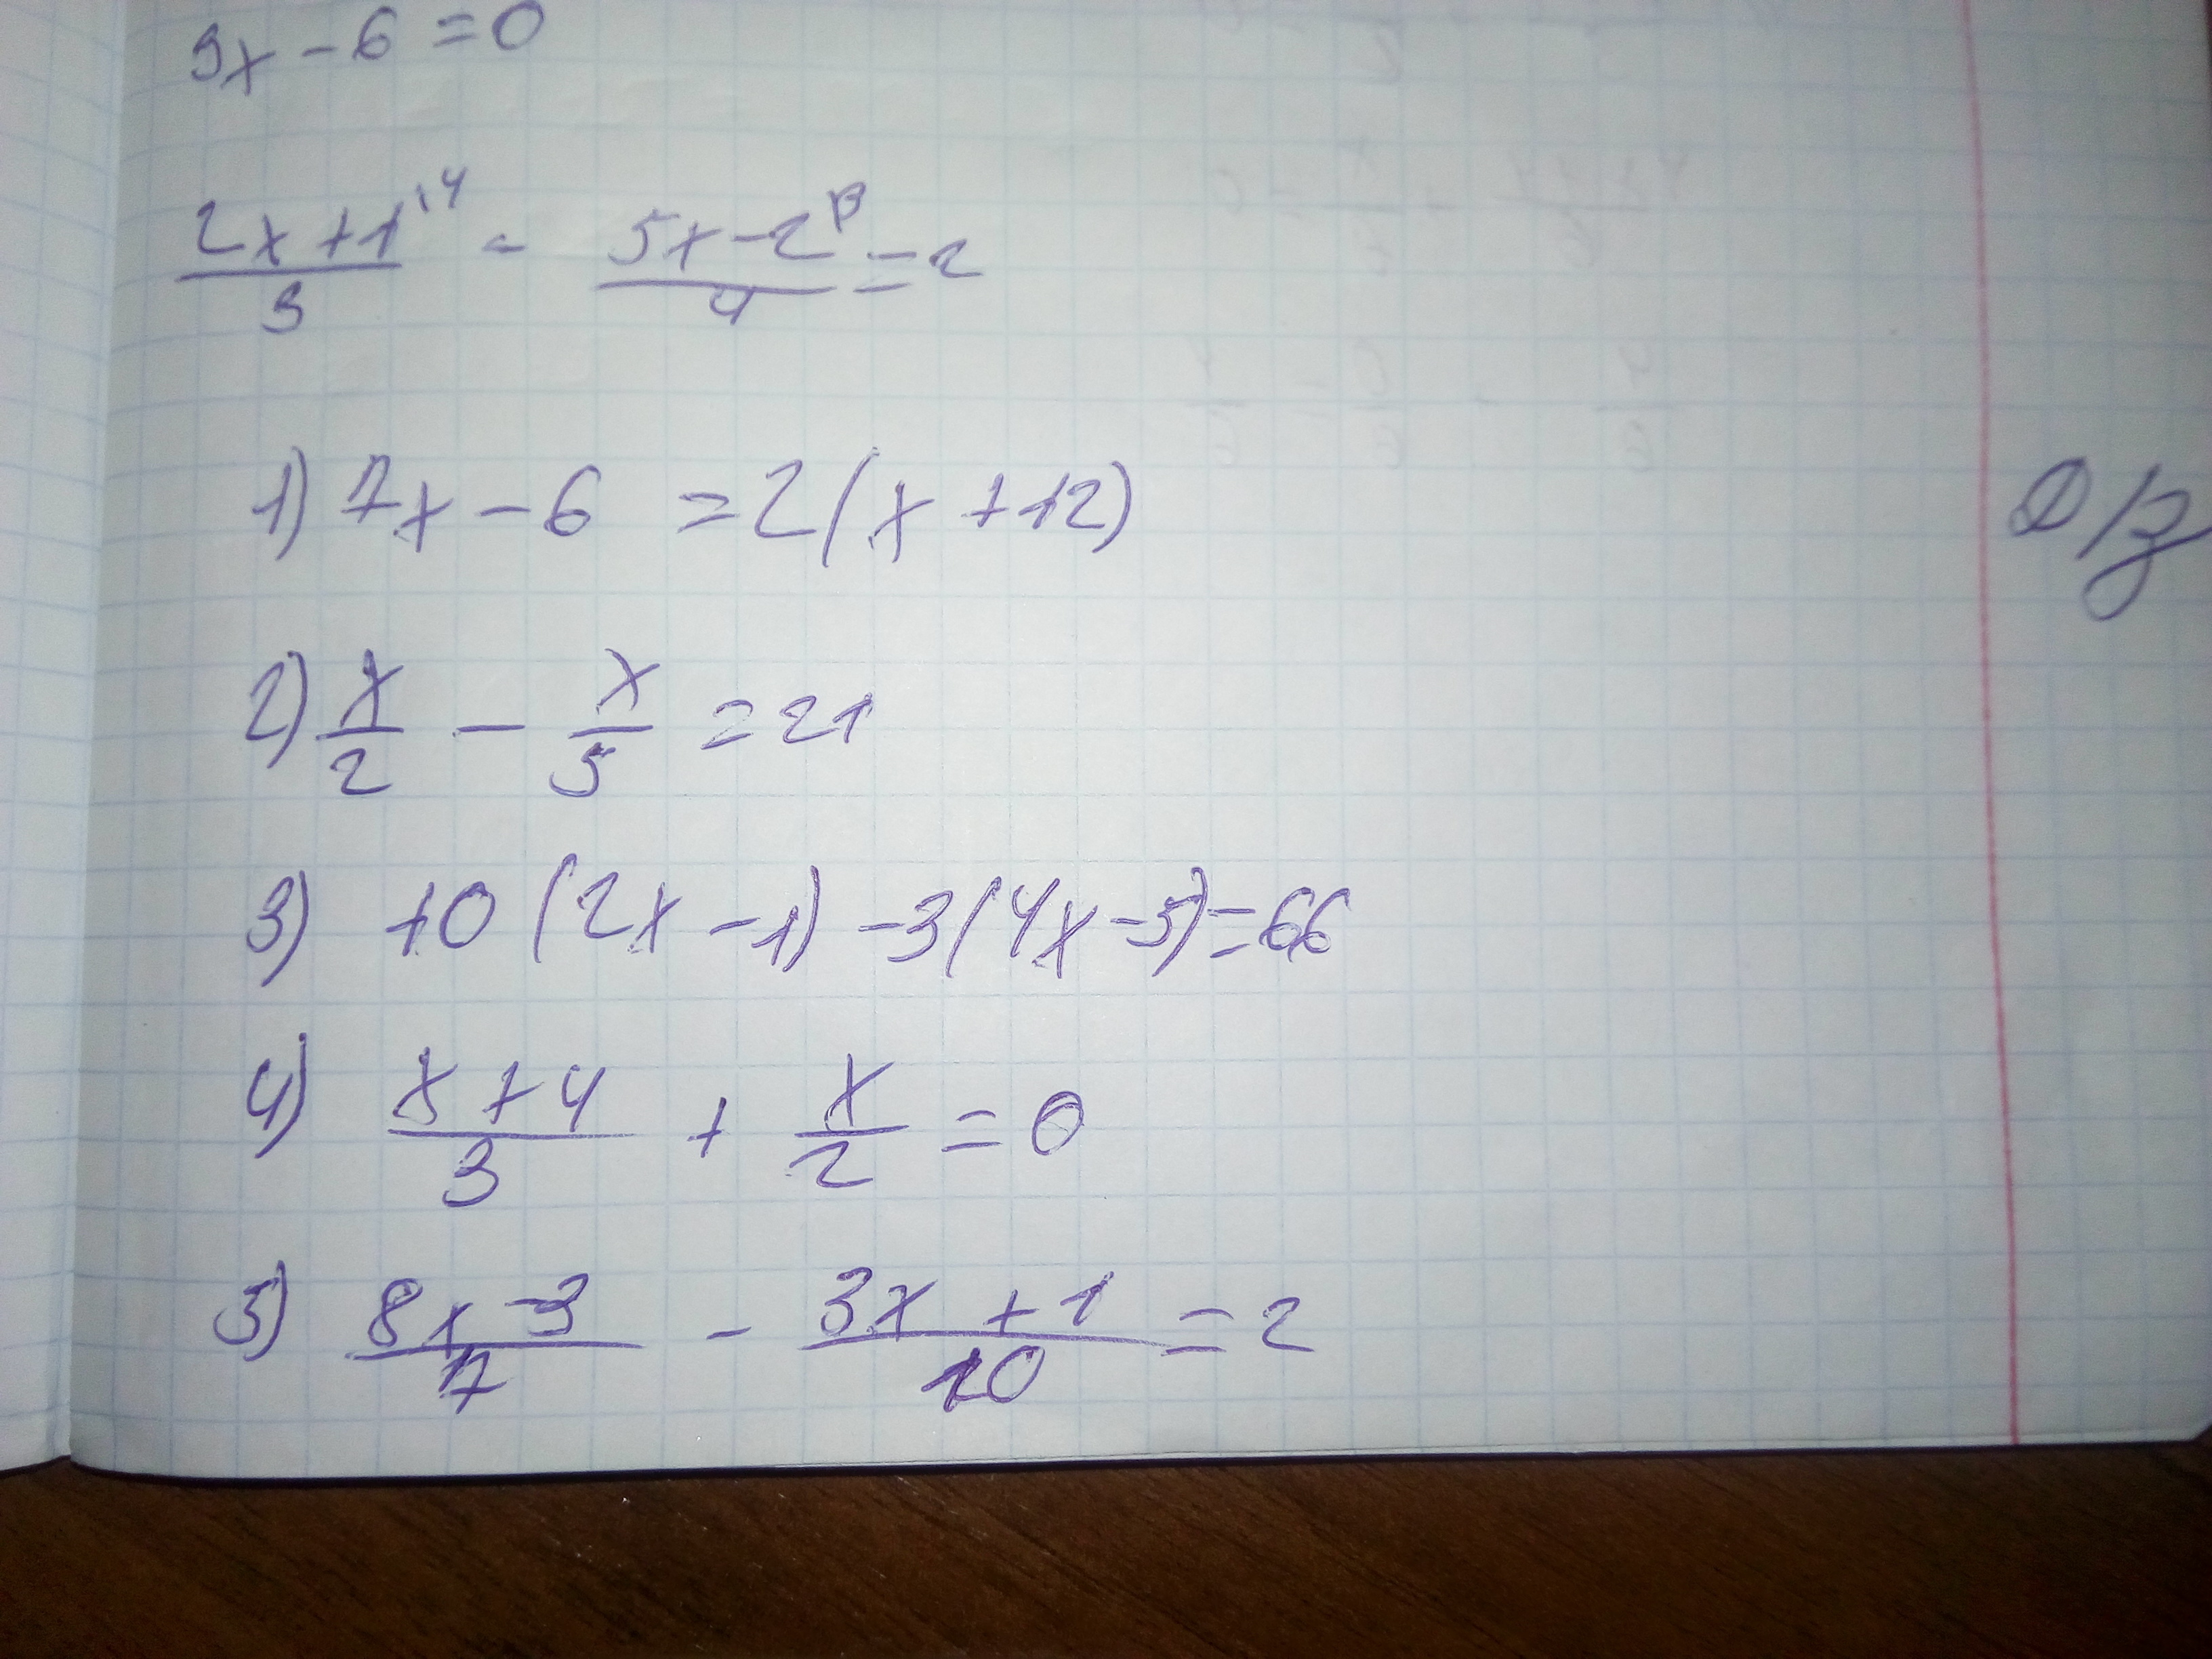 3x - 6 = 0
(2x + 1)/3 - (5x - 2)/4 = 2
1) 7x - 6 = 2(x + 12)
Д/з
2) x/2 - x/5 = 21
3) 10(2x - 1) - 3(4x - 5) = 66
4) (x + 4)/3 + x/2 = 0
5) (8x - 3)/7 - (3x + 1)/10 = 2